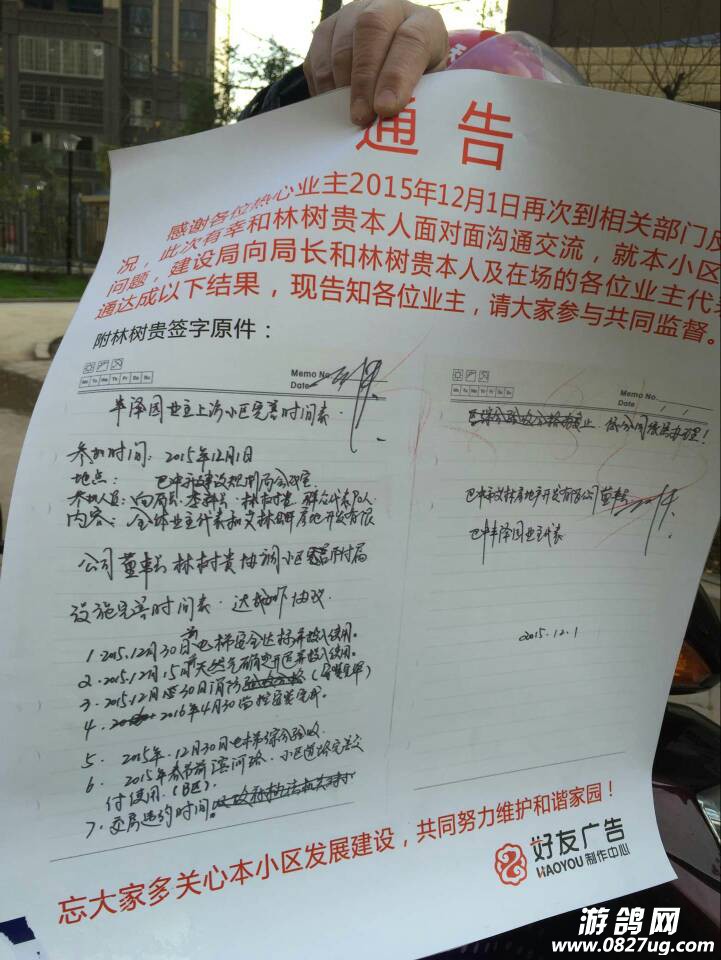 通告
感谢各位热心业主2015年12月1日再次到相关部门反
况，此次有幸和林树贵本人面对面沟通交流，就本小区
问题，建设局向局长和林树贵本人及在场的各位业主代表
通达成以下结果，现告知各位业主，请大家参与共同监督。
附林树贵签字原件：
Memo No.
Date
Mo Tu We Th Fr Sa Su
丰泽园业主上访小区完善时间表.
参加时间: 2015年12月1日
地点: 巴中市建设规划局会议室
参加人员: 向局长 李 林树贵 群众代表 人
内容: 全体业主代表和艾林 房地开发有限
公司董事长林树贵协调小区 附属
设施完善时间表. 达成如下协议
1. 2015.12月30日前电梯安全达标并投入使用.
2. 2015.12月15日前天然气 并投入使用.
3. 2015.12月 30日消防
4. 2016年4月30 监控安装完成.
5. 2015年.12月30日电梯综合验收
6. 2015年春节前滨河路. 小区道路完善交
付使用.(B区)
7. 交房违约时间.
Memo No.
Date / /
巴中市艾林房地产开发有限公司董事长
巴中丰泽园业主代表
2015.12.1
忘大家多关心本小区发展建设，共同努力维护和谐家园！
好友广告
HAOYOU 制作中心
游鸽网
www.0827ug.com